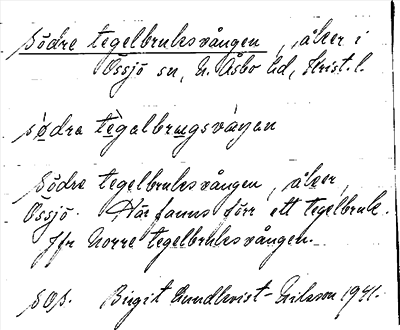 Södre tegelbruksvången, åker i
Össjö sn, N. Åsbo hd, Krist. l.
södra tegalbrugsvåŋan
Södre tegelbruksvången, åker,
Össjö. Här fanns förr ett tegelbruk.
Jfr Norre tegelbruksvången.
Birgit Lundkvist-Nilsson 1941.